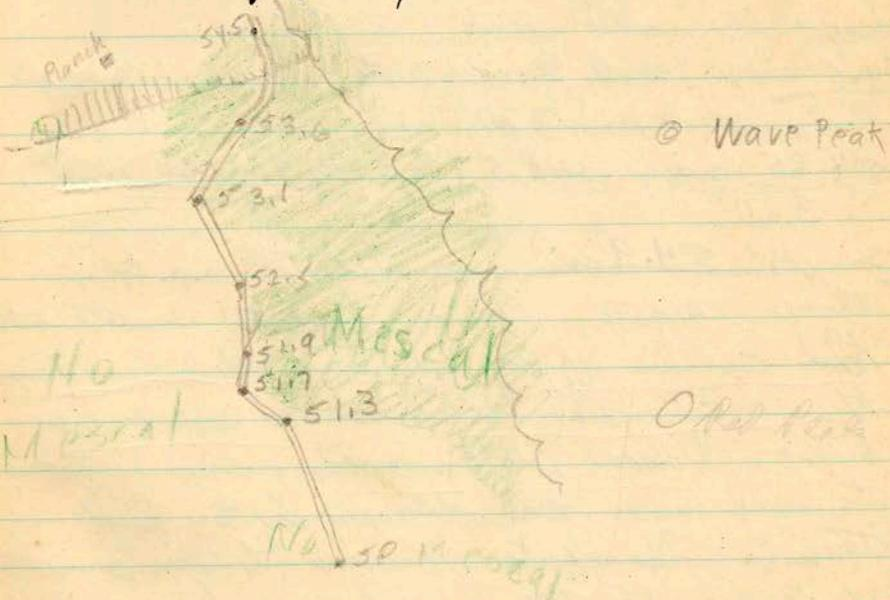 54.5
Ranch
53.6
Wave Peak
53.1
52.5
Mescal
51.9
No
51.7
51.3
Mescal
Red Peak
No Mescal
50